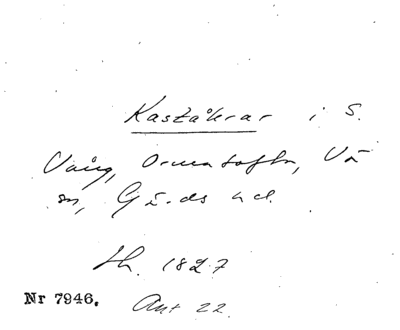 Kaståkrar i S.
Vång, Ormatofta, Vä
sn, Gärds hd.
Lh. 1827
Nr 7946. Ant 22.